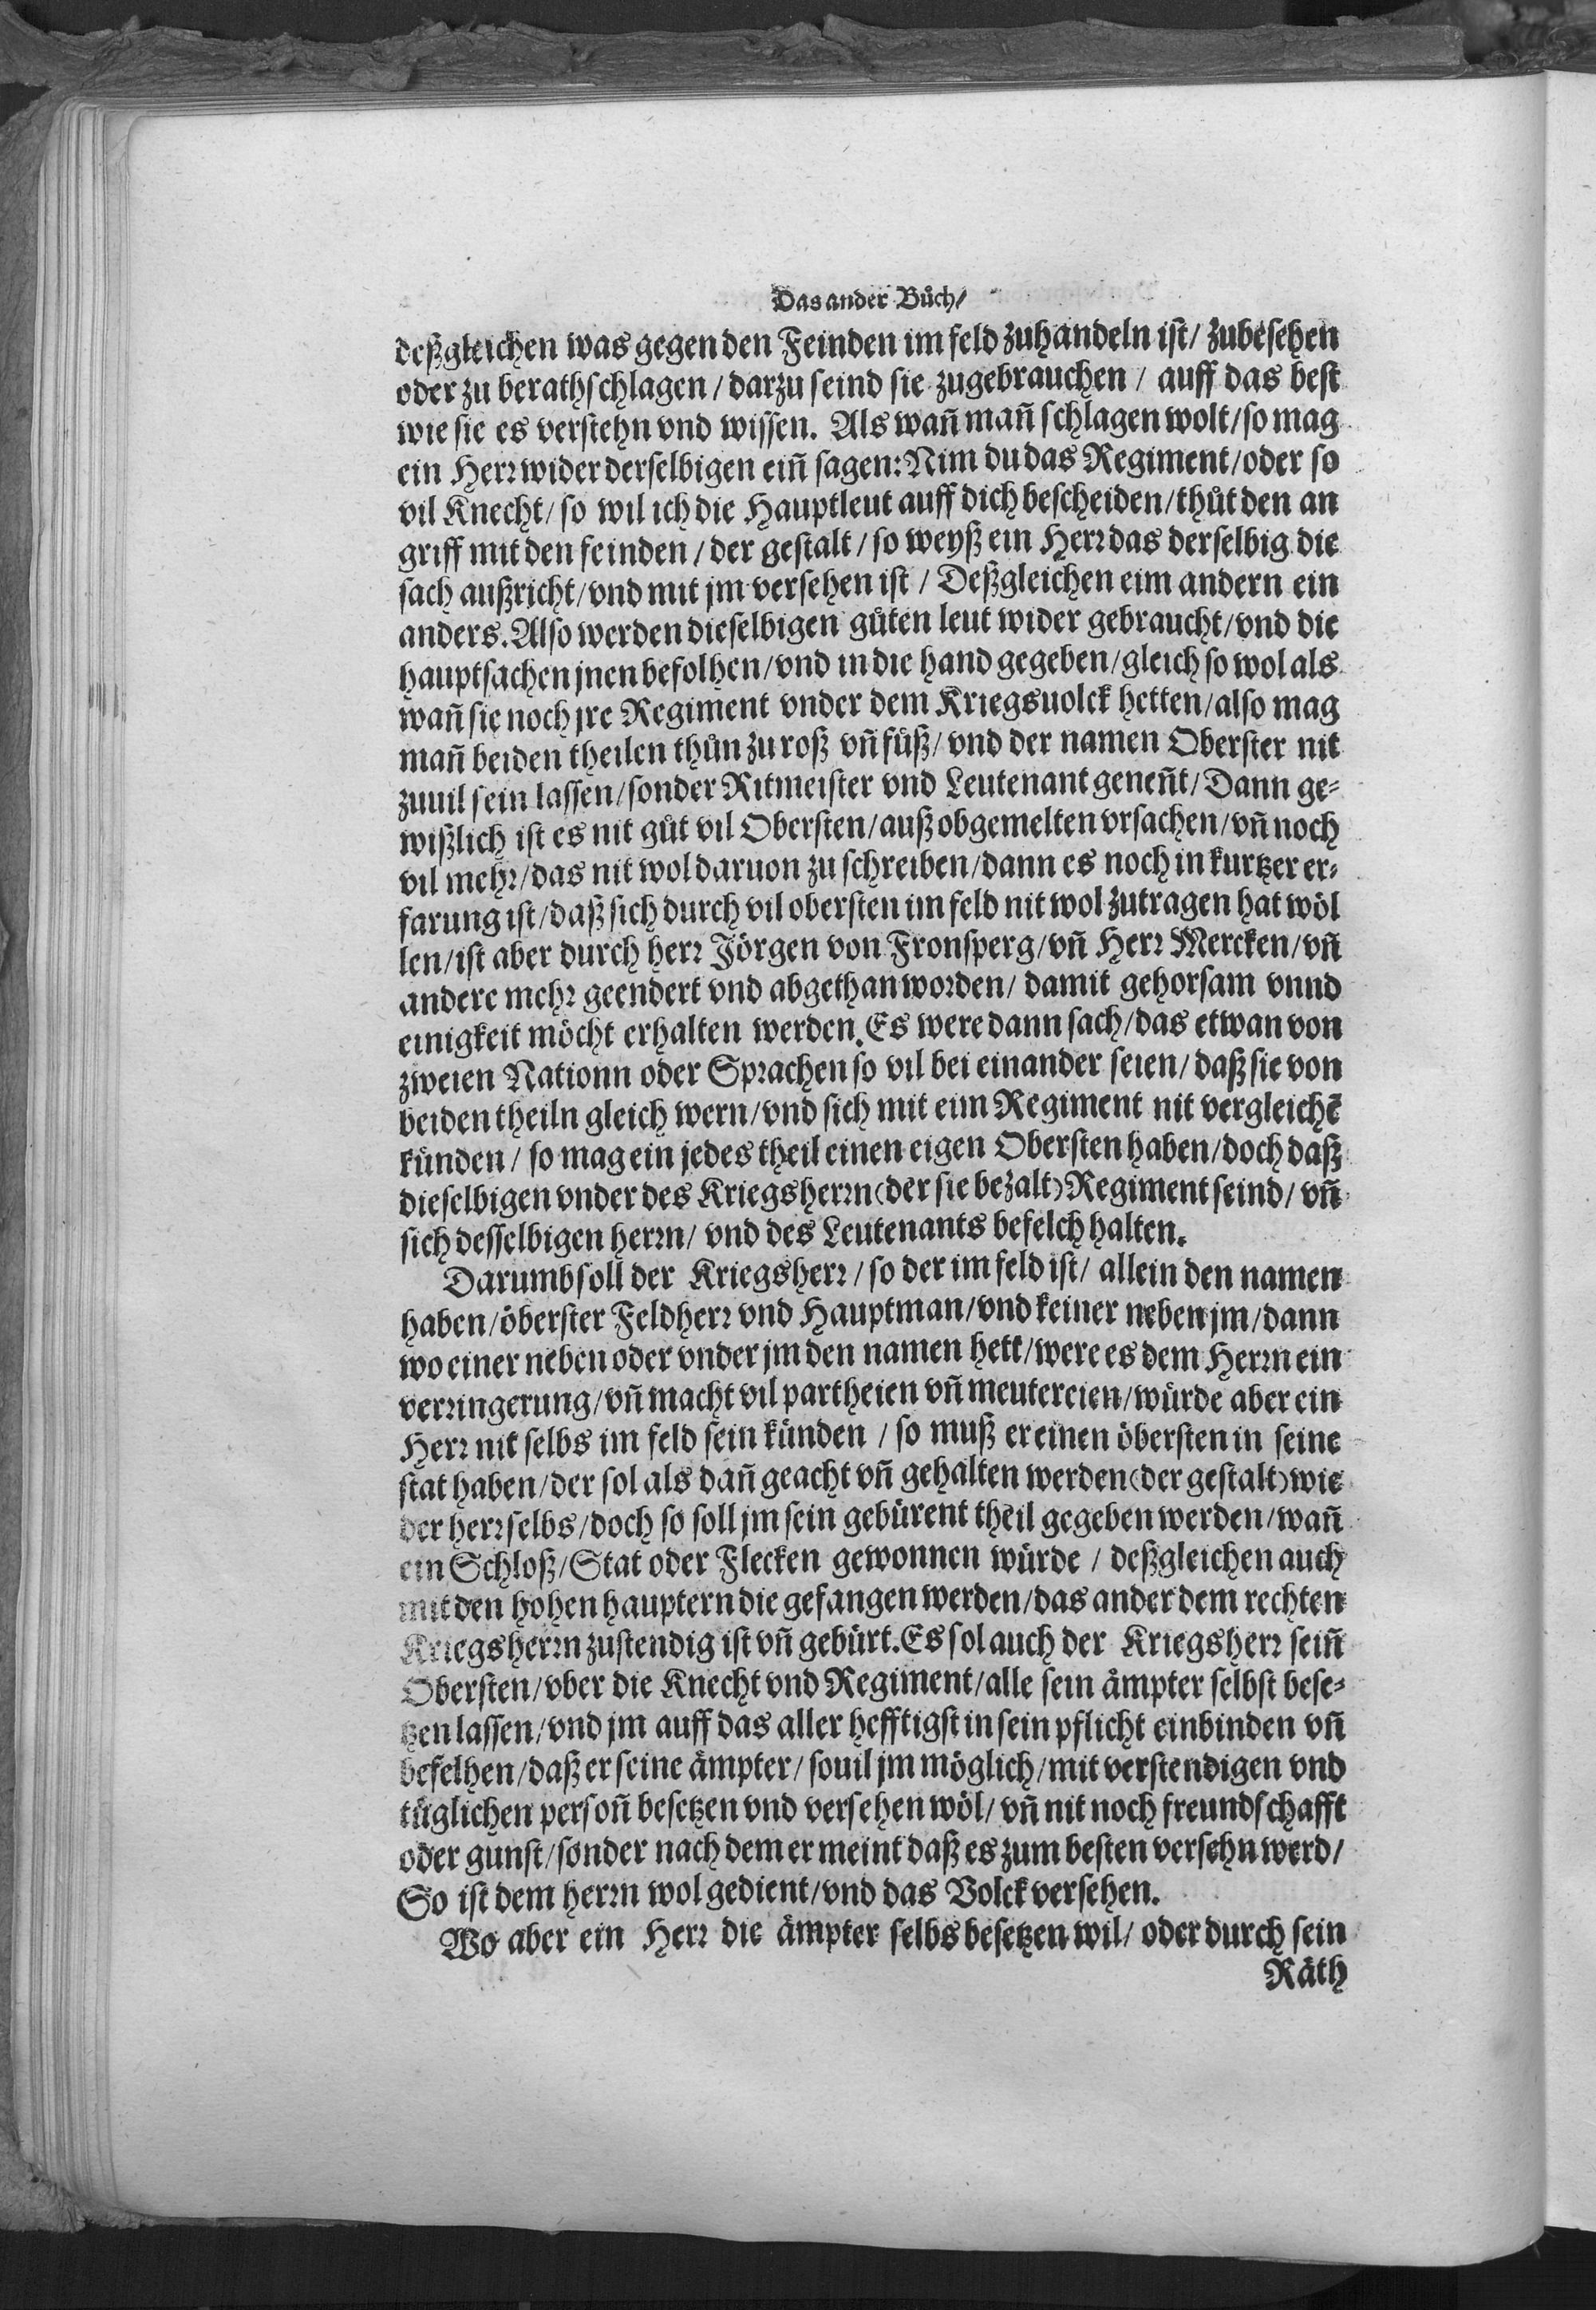 Das ander Bůch/
deßgleichen was gegen den Feinden im feld zuhandeln ist/ zubesehen
oder zu berathschlagen/ darzu seind sie zugebrauchen/ auff das best
wie sie es verstehn vnd wissen. Als wañ mañ schlagen wolt/ so mag
ein Herr wider derselbigen eiñ sagen: Nim du das Regiment/ oder so
vil Knecht/ so wil ich die Hauptleut auff dich bescheiden/ thůt den an
griff mit den feinden/ der gestalt/ so weyß ein Herr das derselbig die
sach außricht/ vnd mit jm versehen ist/ Deßgleichen eim andern ein
anders. Also werden dieselbigen gůten leut wider gebraucht/ vnd die
hauptsachen jnen befolhen/ vnd in die hand gegeben/ gleich so wol als
wañ sie noch jre Regiment vnder dem Kriegsuolck hetten/ also mag
mañ beiden theilen thůn zu roß vñ fůß/ vnd der namen Oberster nit
zuuil sein lassen/ sonder Ritmeister vnd Leutenant geneñt/ Dann ge-
wißlich ist es nit gůt vil Obersten/ auß obgemelten vrsachen/ vñ noch
vil mehr/ das nit wol daruon zu schreiben/ dann es noch in kurtzer er-
farung ist/ daß sich durch vil obersten im feld nit wol zutragen hat wöl
len/ ist aber durch herr Jörgen von Fronsperg/ vñ Herr Mercken/ vñ
andere mehr geendert vnd abgethan worden/ damit gehorsam vnnd
einigkeit möcht erhalten werden. Es were dann sach/ das etwan von
zweien Nationn oder Sprachen so vil bei einander seien/ daß sie von
beiden theiln gleich wern/ vnd sich mit eim Regiment nit vergleichẽ
künden/ so mag ein jedes theil einen eigen Obersten haben/ doch daß
dieselbigen vnder des Kriegsherrn (der sie bezalt) Regiment seind/ vñ
sich desselbigen herrn/ vnd des Leutenants befelch halten.
Darumb soll der Kriegsherr/ so der im feld ist/ allein den namen
haben/ öberster Feldherr vnd Hauptman/ vnd keiner neben jm/ dann
wo einer neben oder vnder jm den namen hett/ were es dem Herrn ein
verringerung/ vñ macht vil partheien vñ meutereien/ würde aber ein
Herr nit selbs im feld sein künden/ so muß er einen öbersten in seine
stat haben/ der sol als dañ geacht vñ gehalten werden (der gestalt) wie
der herr selbs/ doch so soll jm sein gebürent theil gegeben werden/ wañ
ein Schloß/ Stat oder Flecken gewonnen würde/ deßgleichen auch
mit den hohen hauptern die gefangen werden/ das ander dem rechten
Kriegsherrn zustendig ist vñ gebürt. Es sol auch der Kriegsherr seiñ
Obersten/ vber die Knecht vnd Regiment/ alle sein ämpter selbst bese-
tzen lassen/ vnd jm auff das aller hefftigst in sein pflicht einbinden vñ
befelhen/ daß er seine ämpter/ souil jm möglich/ mit verstendigen vnd
tüglichen persoñ besetzen vnd versehen wöl/ vñ nit noch freundschafft
oder gunst/ sonder nach dem er meint daß es zum besten versehn werd/
So ist dem herrn wol gedient/ vnd das Volck versehen.
Wo aber ein Herr die ämpter selbs besetzen wil/ oder durch sein
Räth